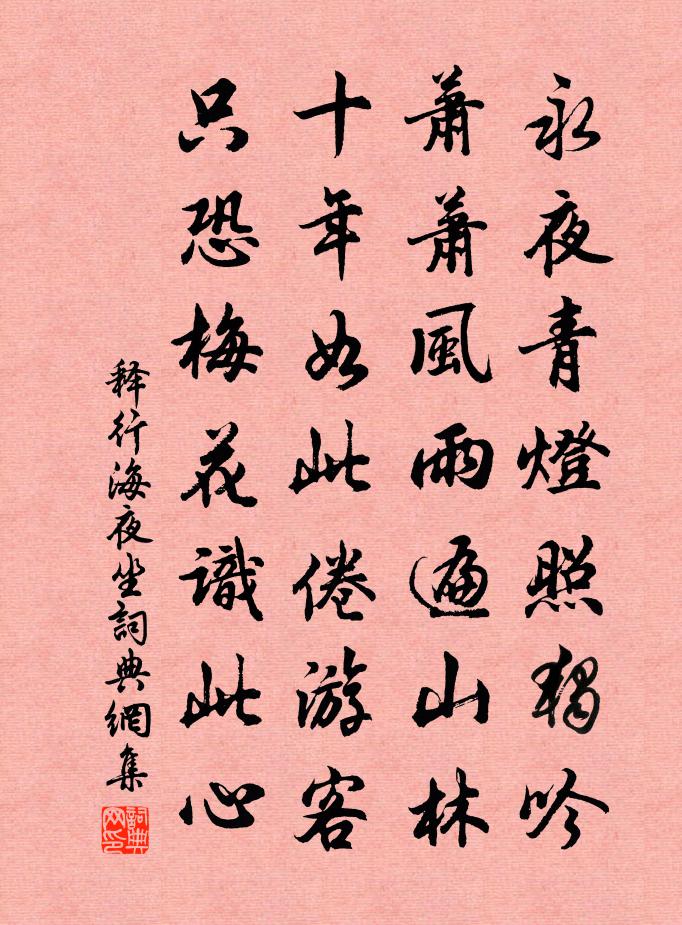 永夜青燈照獨吟
蕭蕭風雨遍山林
十年如此倦游客
只恐梅花識此心
释行海夜坐詞典網集
詞典网印